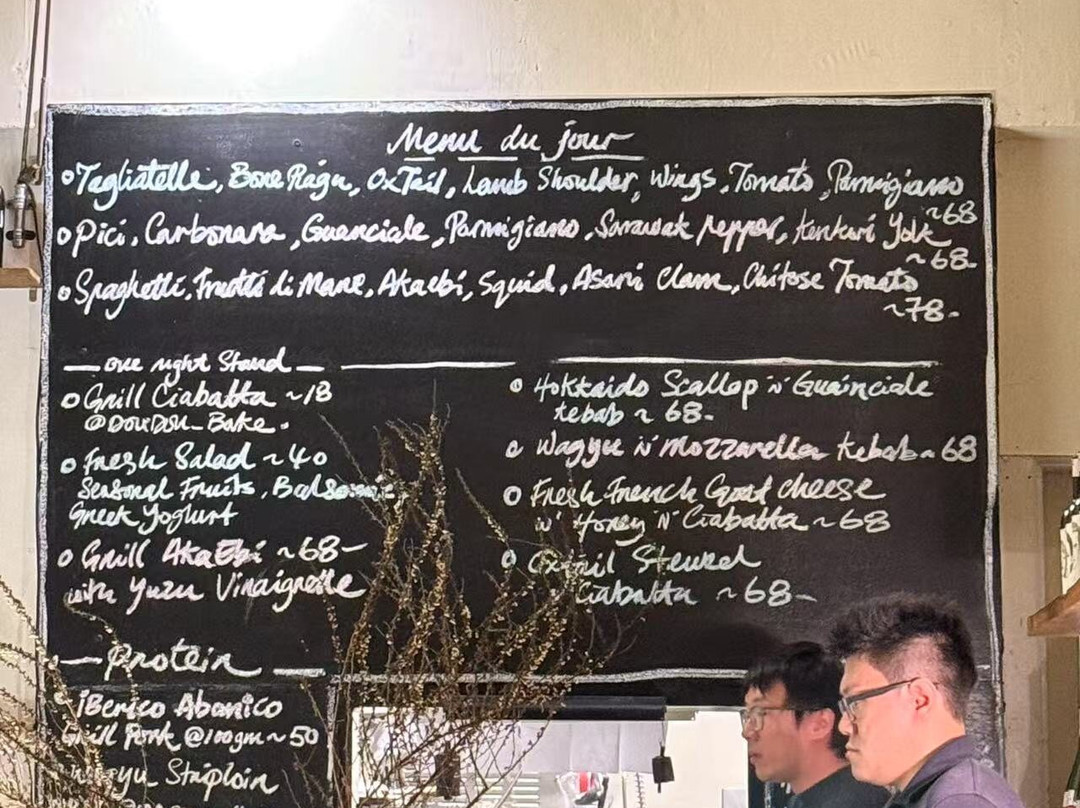 Menu du jour
Tagliatelle, Bone Ragu, OxTail, Lamb Shoulder, Wings, Tomato, Parmigiano
~68
Pici, Carbonara, Guanciale, Parmigiano, Sarawak Pepper, Kenkori Yolk
~68-
Spaghetti, Frutti di Mare, Akaebi, Squid, Asari Clam, Chitose Tomato
~78-
one night Stand
Grill Ciabatta ~18
@DOUDOU_Bake.
Fresh Salad ~40
Seasonal Fruits, Balsamic
Greek Yoghurt
Grill AkaEbi ~68-
with Yuzu Vinaigrette
Hokkaido Scallop 'n' Guanciale
Kebab ~ 68-
Wagyu 'N' Mozzarella Kebab ~ 68
Fresh French Goat cheese
w' Honey 'N' Ciabatta ~68
Oxtail Stewed
Ciabatta ~68-
Protein
iBerico Abanico
Grill Pork @100gm ~50
Wagyu Striploin